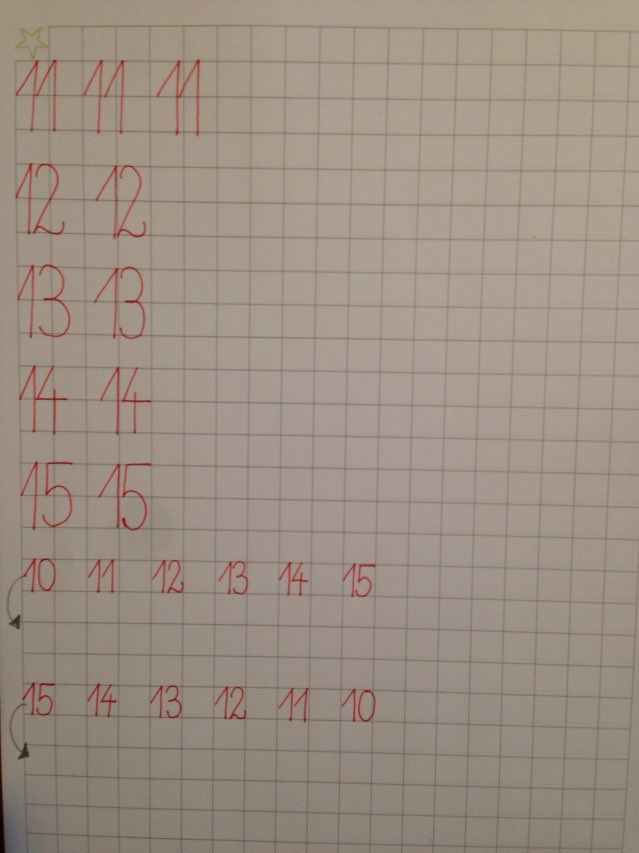 11 11 11
12 12
13 13
14 14
15 15
10 11 12 13 14 15
15 14 13 12 11 10